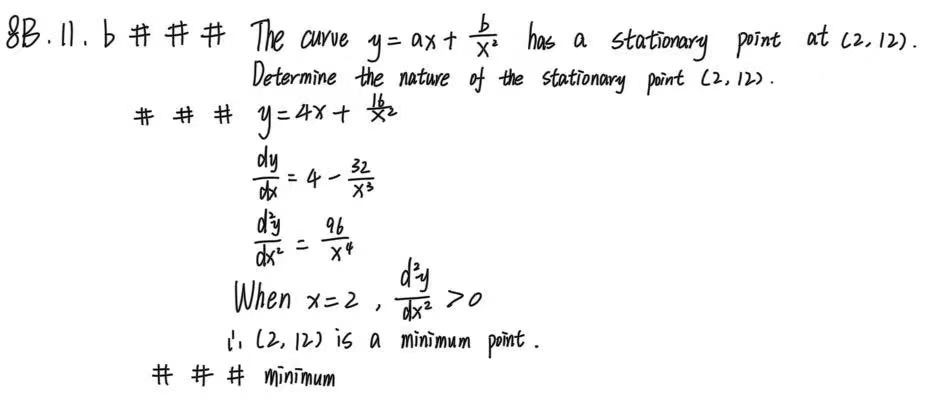 8B.11.b # # # The curve y = ax + b/x² has a stationary point at (2,12).
Determine the nature of the stationary point (2,12).
# # # y = 4x + 16/x²
dy/dx = 4 - 32/x³
d²y/dx² = 96/x⁴
When x=2, d²y/dx² > 0
∴ (2,12) is a minimum point.
# # # minimum